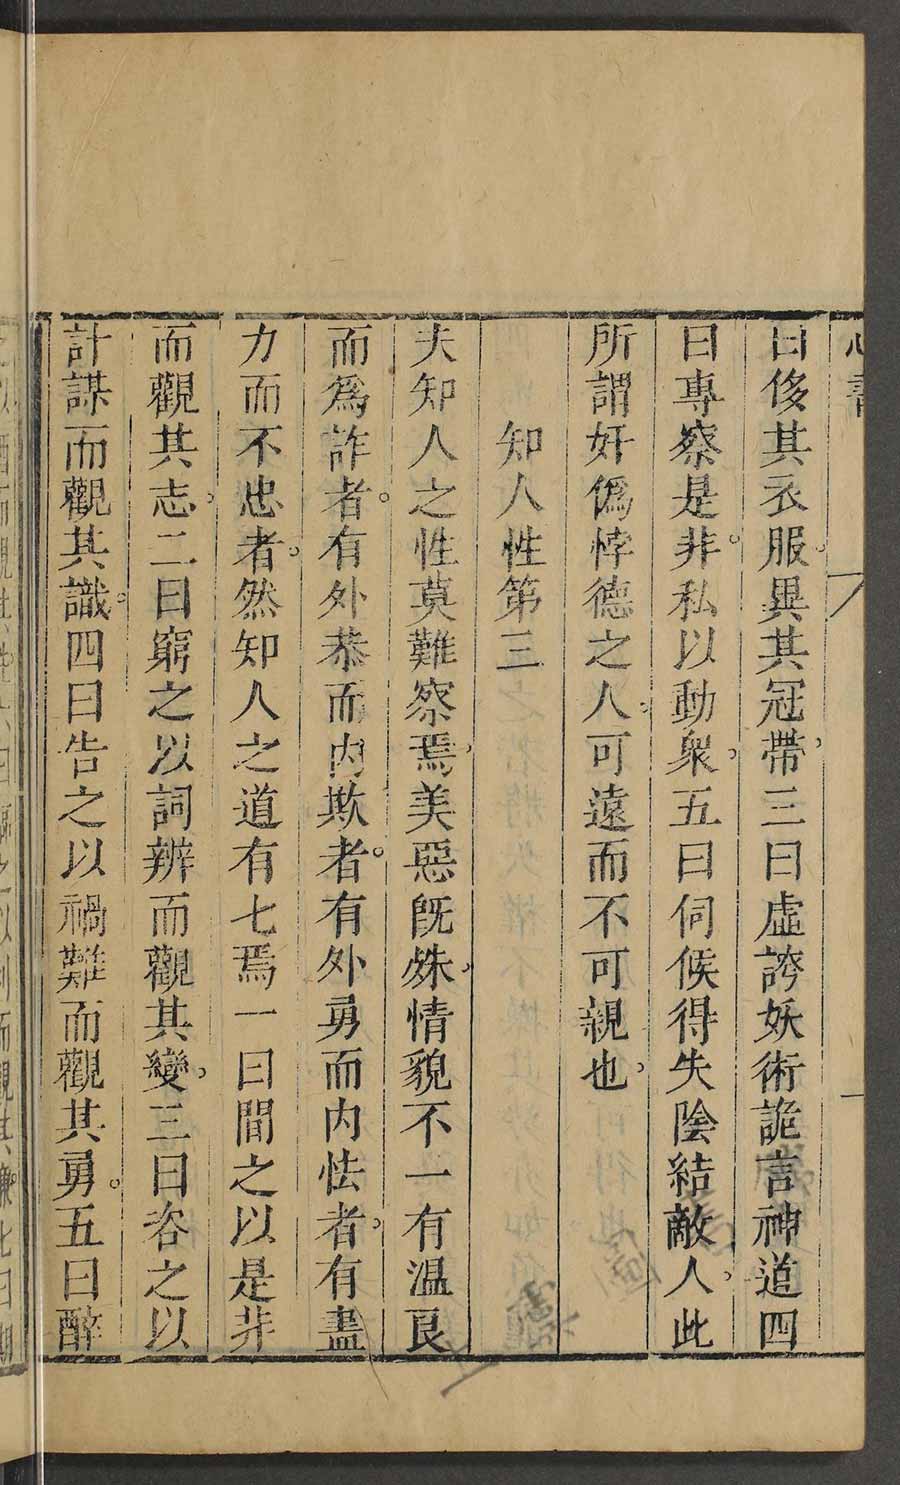 心書
曰侈其衣服異其冠帶三曰虛誇妖術詭言神道四
曰專察是非私以動衆五曰伺候得失陰結敵人此
所謂奸僞悖德之人可遠而不可親也
知人性第三
夫知人之性莫難察焉美惡旣殊情貌不一有溫良
而爲詐者有外恭而內欺者有外勇而內怯者有盡
力而不忠者然知人之道有七焉一曰間之以是非
而觀其志二曰窮之以詞辨而觀其變三曰咨之以
計謀而觀其識四曰告之以禍難而觀其勇五曰醉